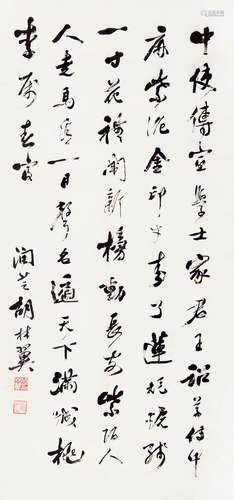 中使傳宣學士家君王詔草侍中
麻紫泥金印了蓮炬殘
一寸花禮闈新榜動長安紫陌人
人走馬看一日聲名遍天下滿城桃
李屬春官
潤芝胡林翼